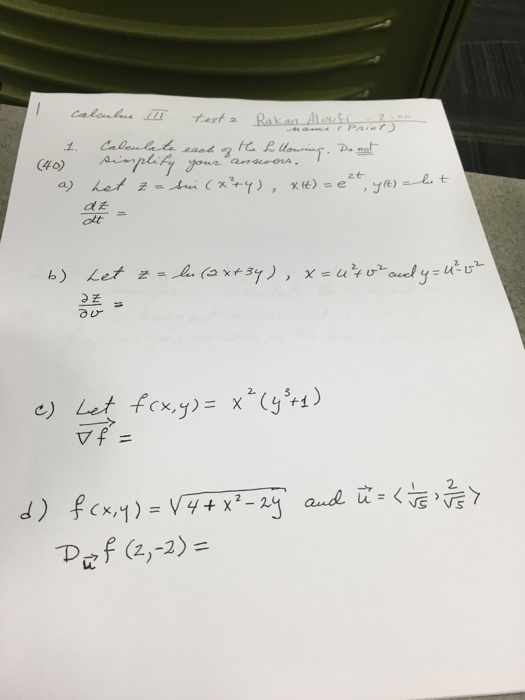 Calculus III test 2 Rakan
name (Print)
1. Calculate each of the following. Do not
(40) simplify your answers.
a) Let z = sin(x²+y), x(t) = e^2t, y(t) = ln t
dz/dt =
b) Let z = ln(2x+3y), x = u²+v² and y = u²-v²
∂z/∂v =
c) Let f(x,y) = x²(y³+1)
∇f =
d) f(x,y) = √4+x²-2y and u = <1/√5, 2/√5>
D_u f (2,-2) =